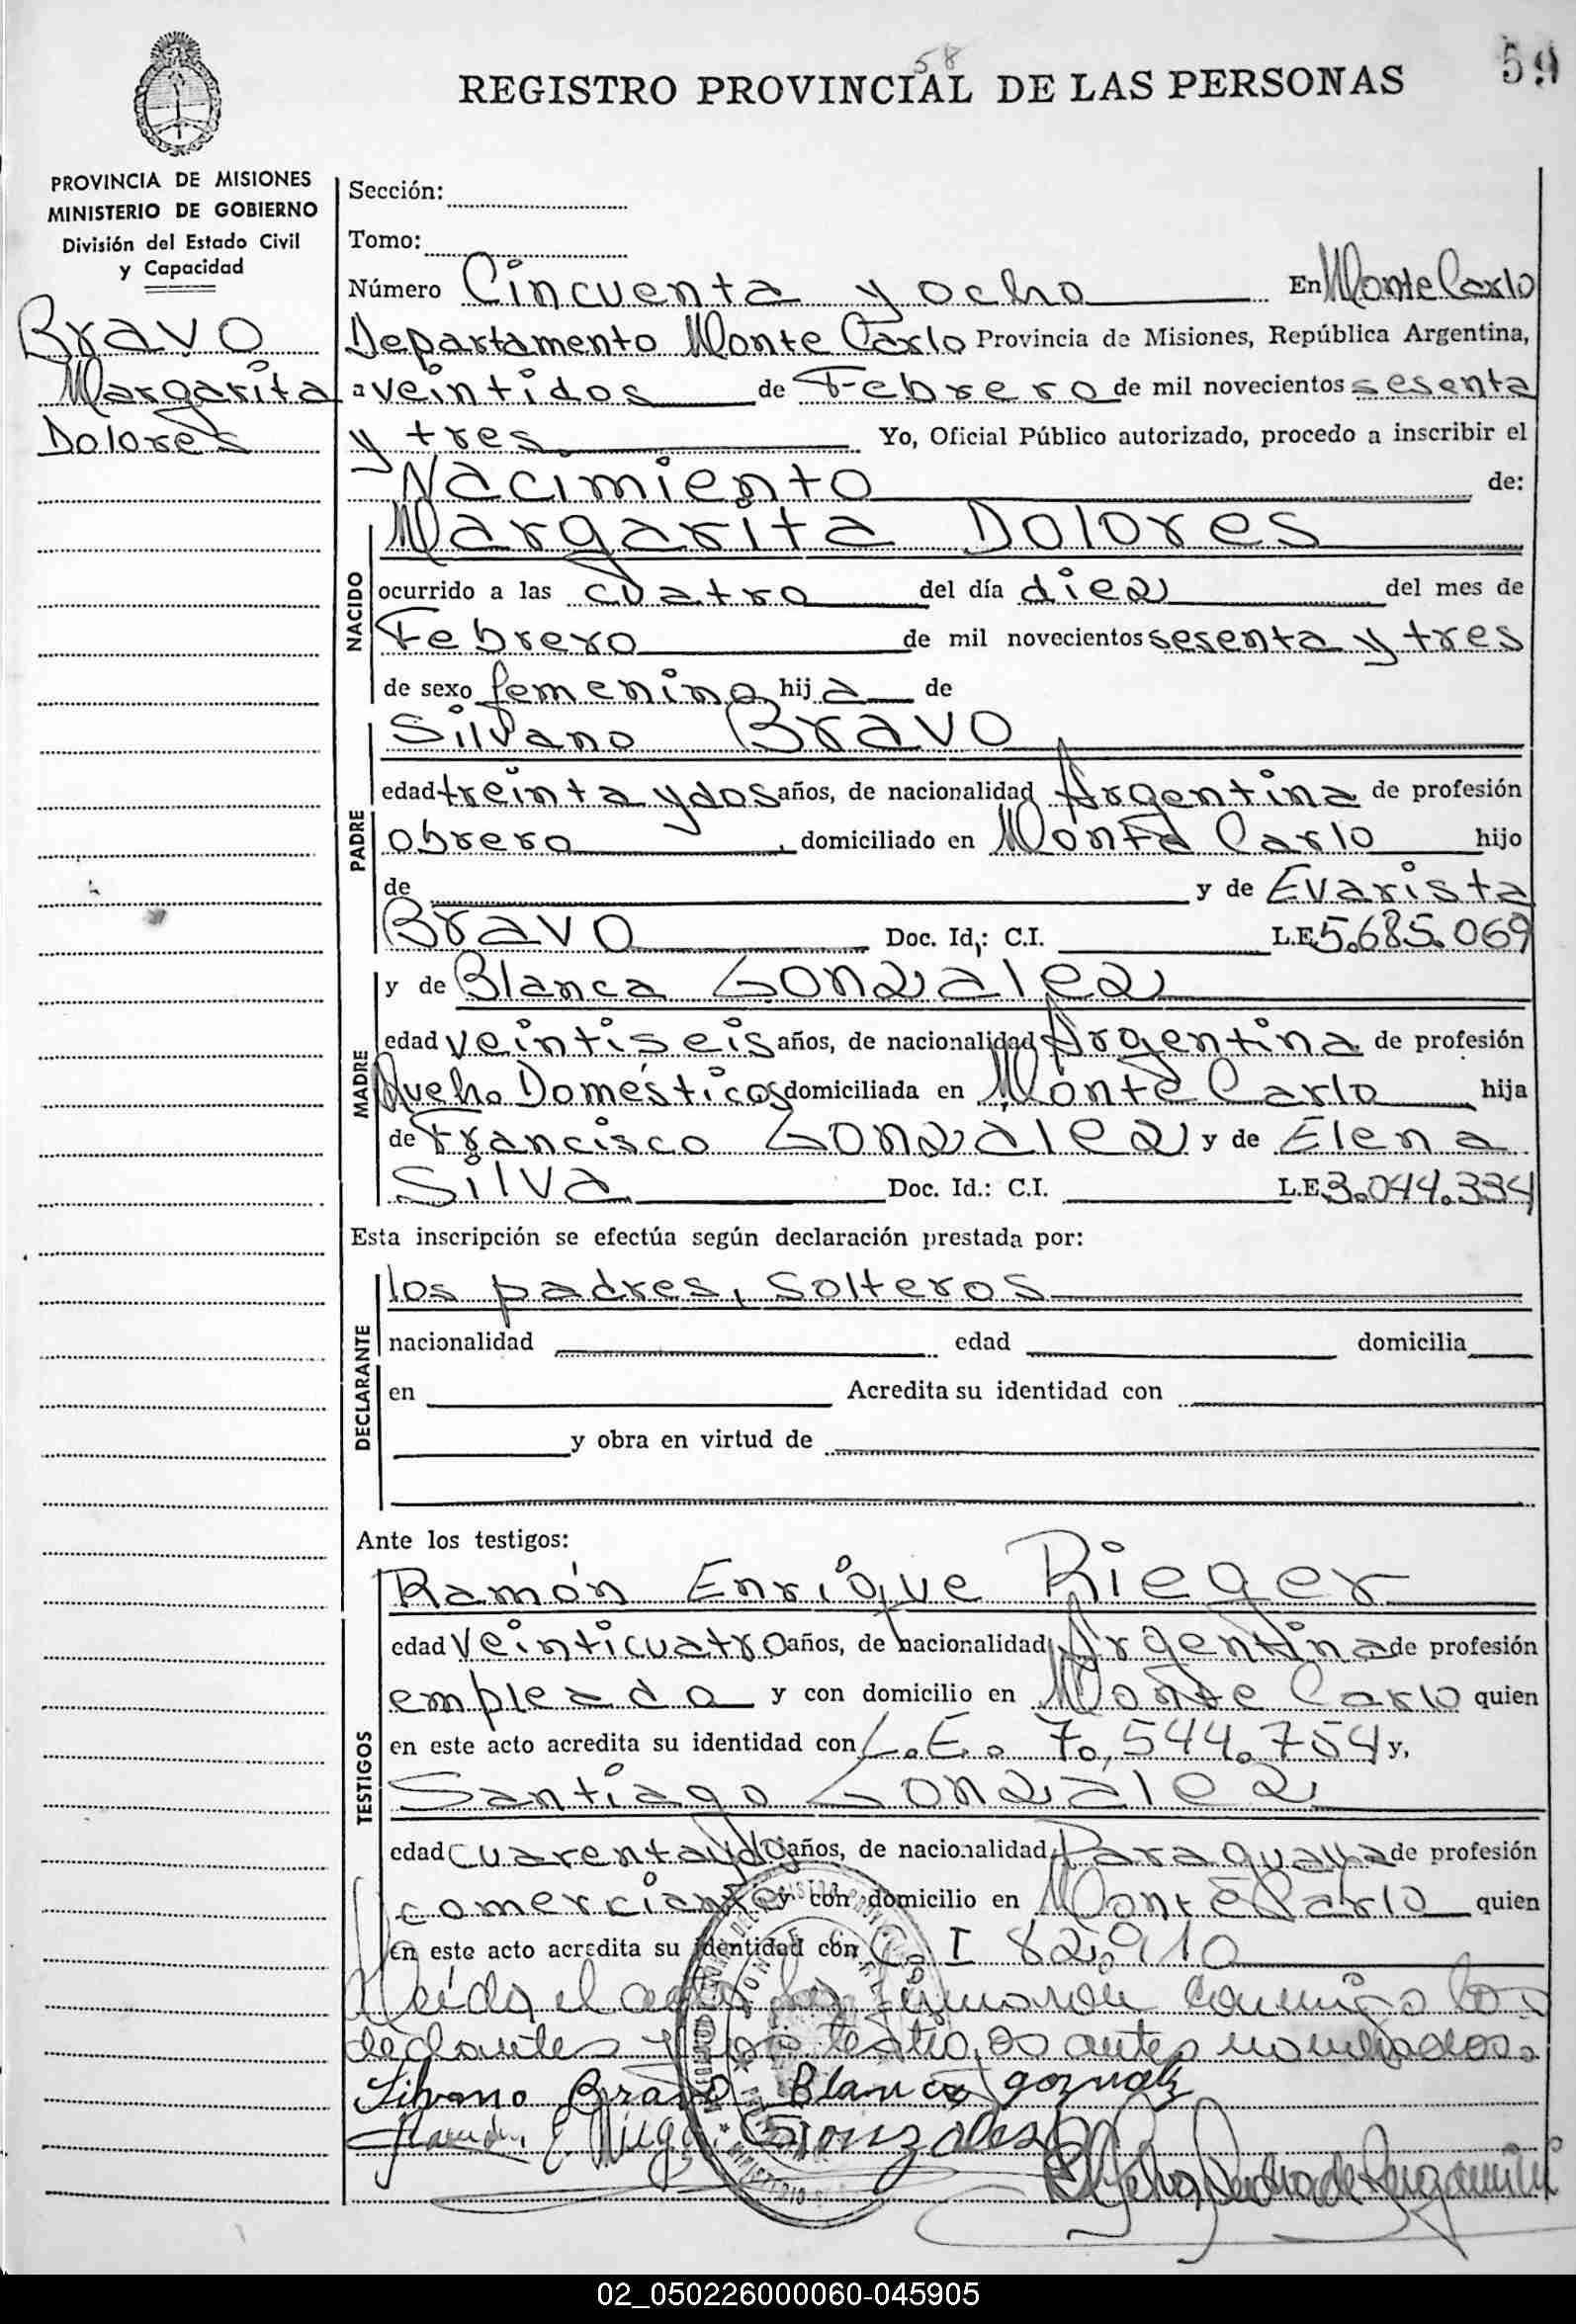 58
59
REGISTRO PROVINCIAL DE LAS PERSONAS
PROVINCIA DE MISIONES
MINISTERIO DE GOBIERNO
División del Estado Civil
y Capacidad
Bravo
Margarita
Dolores
Sección:
Tomo:
Número Cincuenta y ocho En Monte Carlo
Departamento Monte Carlo Provincia de Misiones, República Argentina,
a veintidos de Febrero de mil novecientos sesenta
y tres Yo, Oficial Público autorizado, procedo a inscribir el
Nacimiento de:
NACIDO
Margarita Dolores
ocurrido a las cuatro del día diez del mes de
Febrero de mil novecientos sesenta y tres
de sexo femenino hij a de
PADRE
Silvano Bravo
edad treinta y dos años, de nacionalidad Argentina de profesión
obrero, domiciliado en Monte Carlo hijo
de y de Evarista
Bravo Doc. Id,: C.I. L.E 5.685.069
MADRE
y de Blanca Gonzalez
edad veintiseis años, de nacionalidad Argentina de profesión
Queha. Domésticos domiciliada en Monte Carlo hija
de Francisco Gonzalez y de Elena
Silva Doc. Id.: C.I. L.E. 3.044.334
Esta inscripción se efectúa según declaración prestada por:
DECLARANTE
los padres, solteros
nacionalidad edad domicilia
en Acredita su identidad con
y obra en virtud de
Ante los testigos:
TESTIGOS
Ramón Enrique Rieger
edad veinticuatro años, de nacionalidad Argentina de profesión
empleado y con domicilio en Monte Carlo quien
en este acto acredita su identidad con L.E. 7.544.754 y,
Santiago Gonzalez
edad cuarenta y dos años, de nacionalidad Paraguaya de profesión
comerciante y con domicilio en Monte Carlo quien
en este acto acredita su identidad con C. I 82.910
Leída el acta la firmaron conmigo los
declantes y los testigos antes nombrados.
Silvano Bravo Blanca gonzalez
Ramón E. Rieger Gonzales
02_050226000060-045905